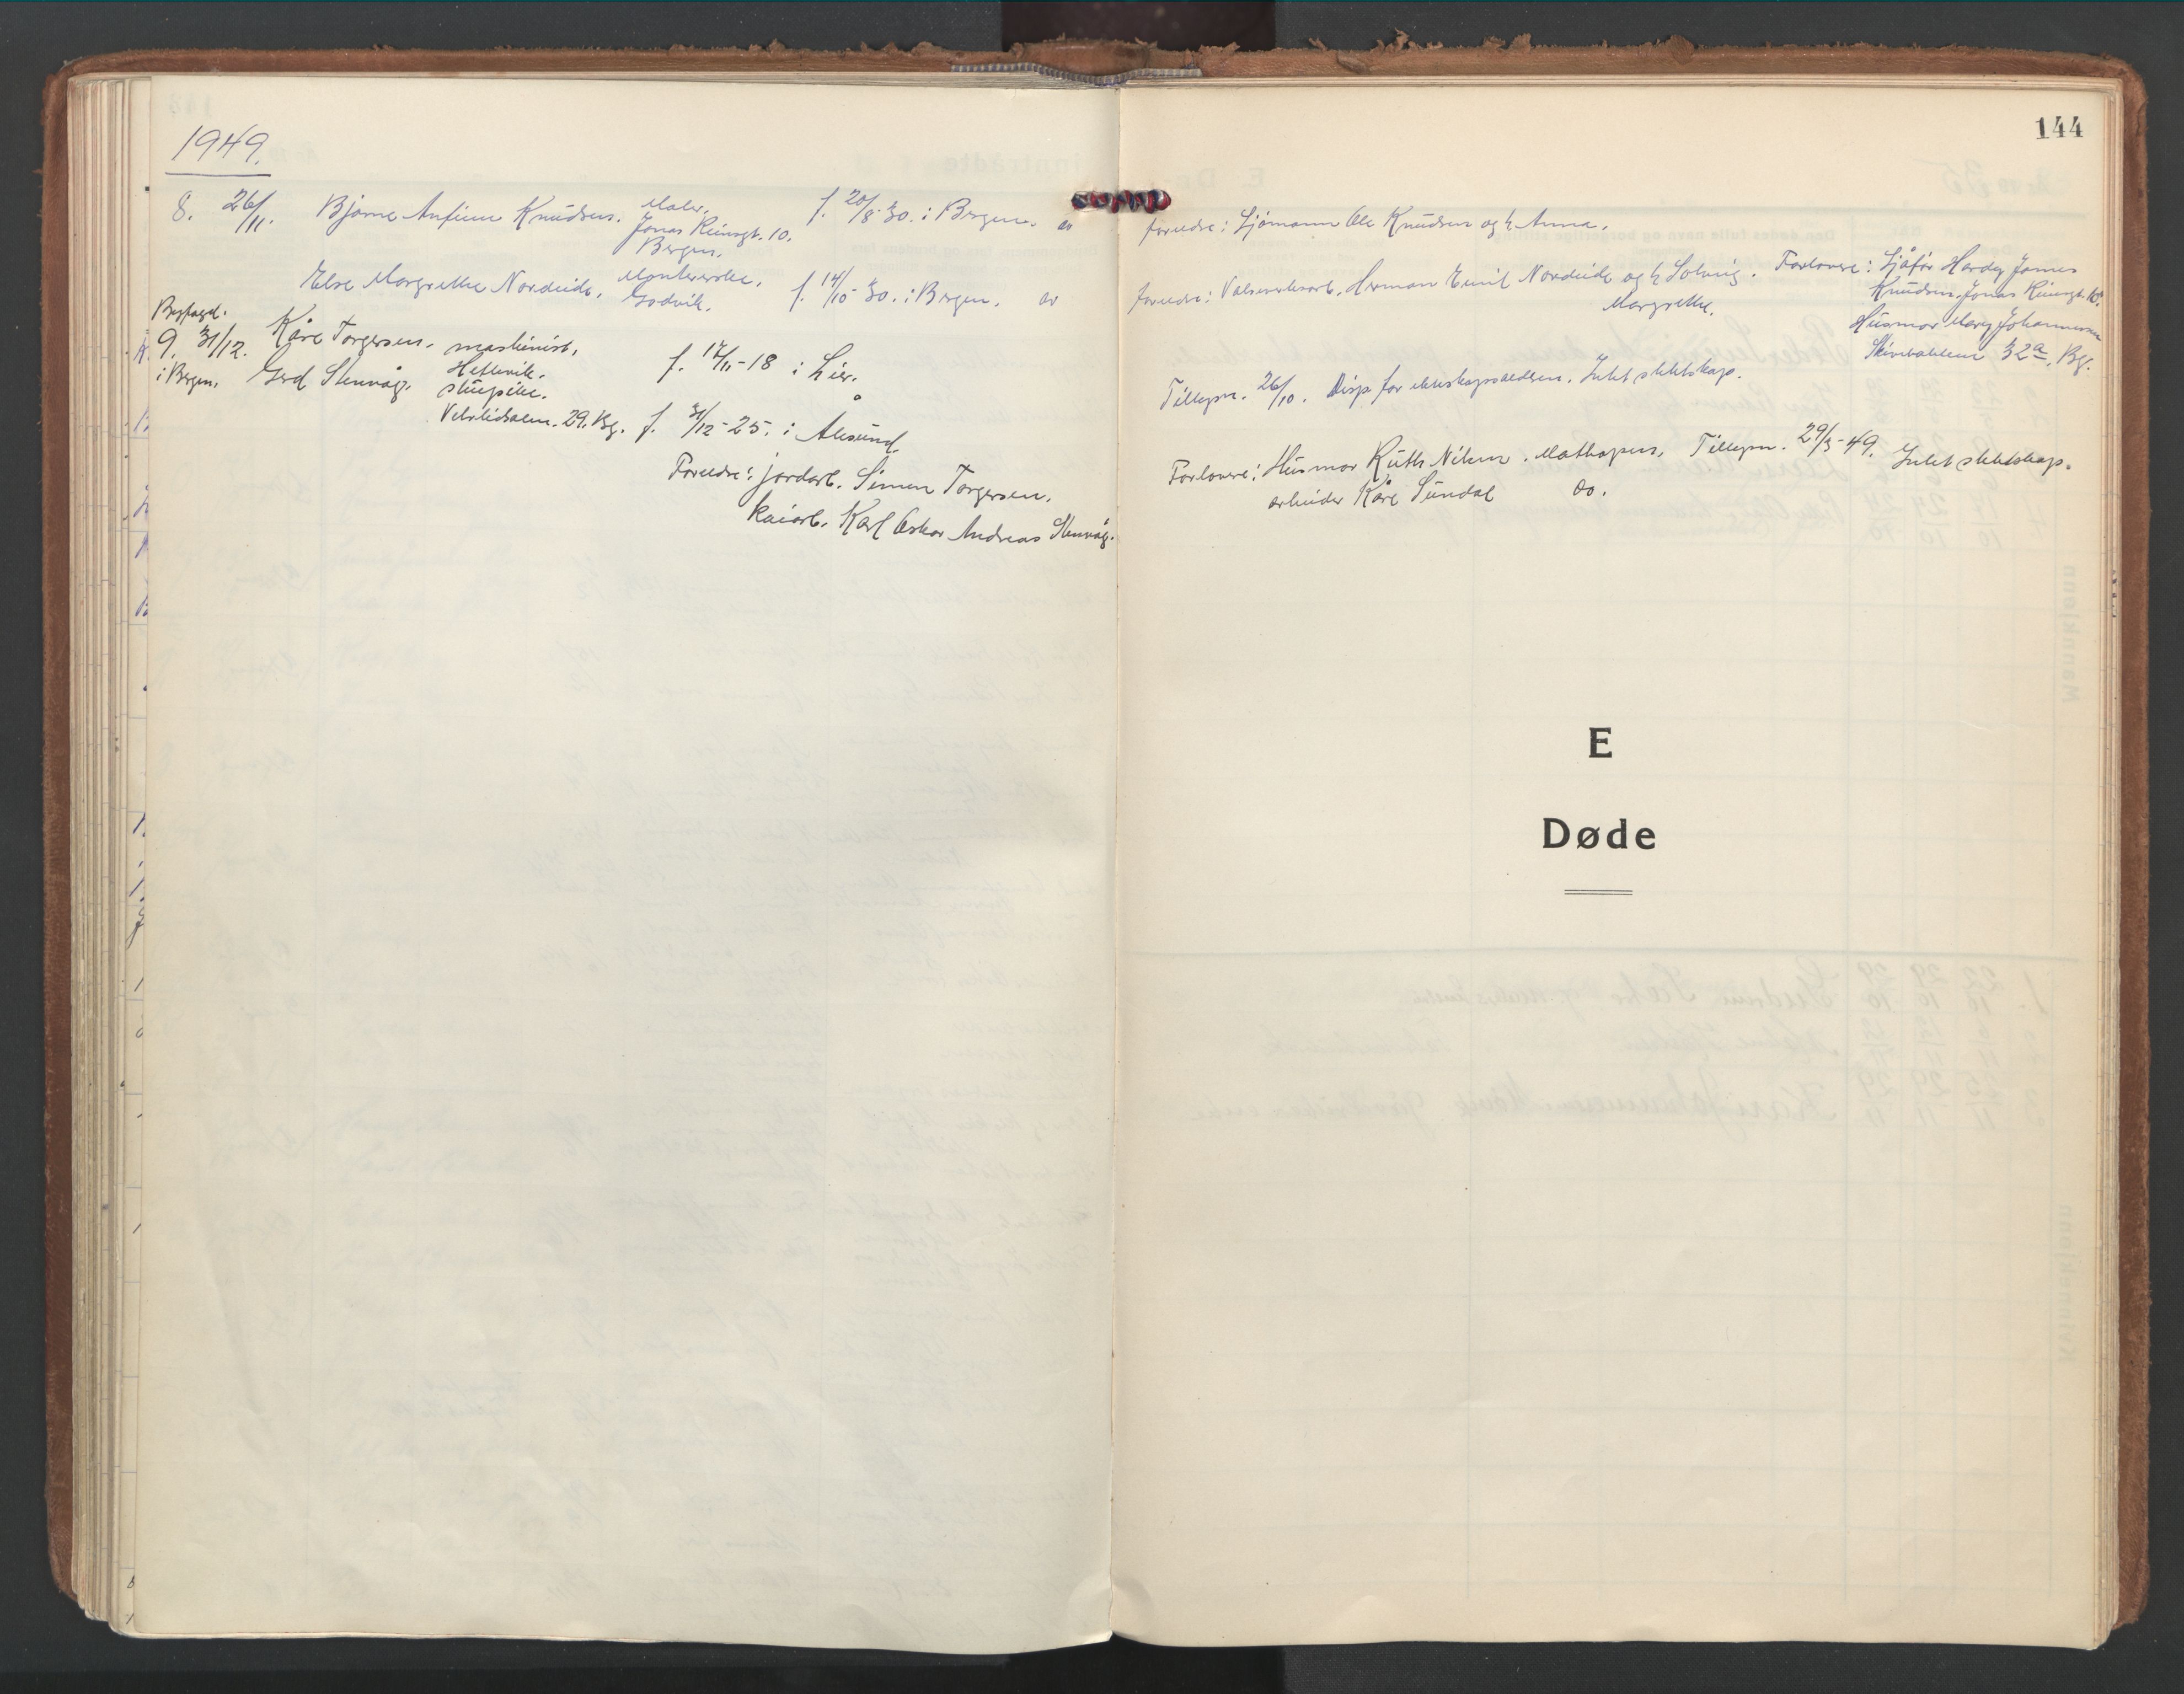 1949.
8. 26/11. Bjarne Anfinn Knudsen. Maler. f. 20/8-30. i Bergen. av
Jonas Reinsgt. 10.
Bergen.
Else Margrethe Nordeide, Monterske. f. 14/10-30. i Bergen. av
Godvik.
Byfogd.
9. 31/12. Kåre Torgersen. maskinist. f. 17/11-18 i Lier.
Hetlevik.
i Bergen. Gerd Stenvåg. stuepike.
29. Bg. f. 31/12-25. i Ålesund.
Foreldre: jordarb. Simen Torgersen.
kaiarb. Karl Oskar Andreas Stenvåg.
144
foreldre: Sjømann Ole Knudsen og h. Anna.
foreldre: Valseverksarb. Herman Emil Nordeide og h. Solveig
Margrethe.
Forlovere: Sjåfør Hardy James
Knudsen, Jonas Reinsgt. 10.
Husmor Mary Johannessen
Skivebakken 32a, Bg.
Tillysn. 26/10. Disp. for ekteskapsalderen. Intet slektskap.
Forlovere: Husmor Ruth Nilsen. Mathopen. Tillysn. 29/3-49. Intet slektskap.
arbeider Kåre Sundal do.
E
Døde